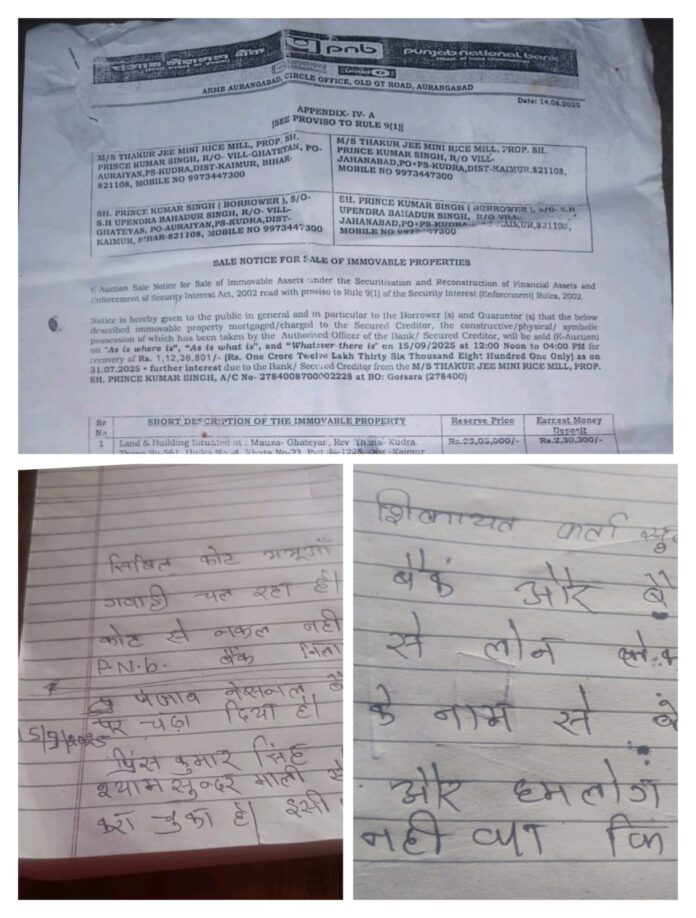 पंजाब नैशनल बैंक pnb punjab national bank
ARMB AURANGABAD, CIRCLE OFFICE, OLD GT ROAD, AURANGABAD
Date: 14.08.2025
APPENDIX- IV- A
[SEE PROVISO TO RULE 9(1)]
M/S THAKUR JEE MINI RICE MILL, PROP. SH. PRINCE KUMAR SINGH, R/O- VILL-GHATEYAN, PO-AURAIYAN,PS-KUDRA,DIST-KAIMUR, BIHAR-821108, MOBILE NO 9973447300
M/S THAKUR JEE MINI RICE MILL, PROP. SH. PRINCE KUMAR SINGH, R/O VILL-JAHANABAD,PO+PS-KUDRA,DIST-KAIMUR,821108, MOBILE NO 9973447300
SH. PRINCE KUMAR SINGH ( BORROWER ), S/O-S.H UPENDRA BAHADUR SINGH, R/O- VILL-GHATEYAN, PO-AURAIYAN,PS-KUDRA,DIST-KAIMUR, BIHAR-821108, MOBILE NO 9973447300
SH. PRINCE KUMAR SINGH ( BORROWER ), S/O-S.H UPENDRA BAHADUR SINGH, R/O VILL-JAHANABAD,PO+PS-KUDRA, MOBILE NO
SALE NOTICE FOR SALE OF IMMOVABLE PROPERTIES
E Auction Sale Notice for Sale of Immovable Assets under the Securitisation and Reconstruction of Financial Assets and
Enforcement of Security Interest Act, 2002 read with proviso to Rule 9(1) of the Security Interest (Enforcement) Rules, 2002.
Notice is hereby given to the public in general and in particular to the Borrower (s) and Guarantor (s) that the below
described immovable property mortgaged/charged to the Secured Creditor, the constructive/physical/ symbolic
possession of which has been taken by the Authorised Officer of the Bank/ Secured Creditor, will be sold (E-Auction)
on "As is where is", "As is what is", and "Whatever there is" on 15/09/2025 at 12:00 Noon to 04:00 PM for
recovery of Rs. 1,12,36,801/- (Rs. One Crore Twelve Lakh Thirty Six Thousand Eight Hundred One Only) as on
31.07.2025 + further interest due to the Bank/ Secured Creditor from the M/S THAKUR JEE MINI RICE MILL, PROP.
SH. PRINCE KUMAR SINGH, A/C No- 2784008700002228 at BO: Gorsara (278400)
Sr No SHORT DESCRIPTION OF THE IMMOVABLE PROPERTY Reserve Price Earnest Money Deposit
1 Land & Building Situated at : Mauza- Ghateyar, Rev Thana- Kudra, Rs.23,03,000/- Rs.2,30,300/-
सिविल कोट भभूआँ
गवाही चल रहा है।
कोट से नकल नही
P.N.b. बैंक
पंजाब नेसनल बै
पर चढ़ा दिया है।
प्रिंस कुमार सिंह
श्याम सुन्दर माली से
करा चुका है। इसी
शिकायत कर्ता
बैंक और बै
से लोन
के नाम से बै
और हमलोग
नही था कि